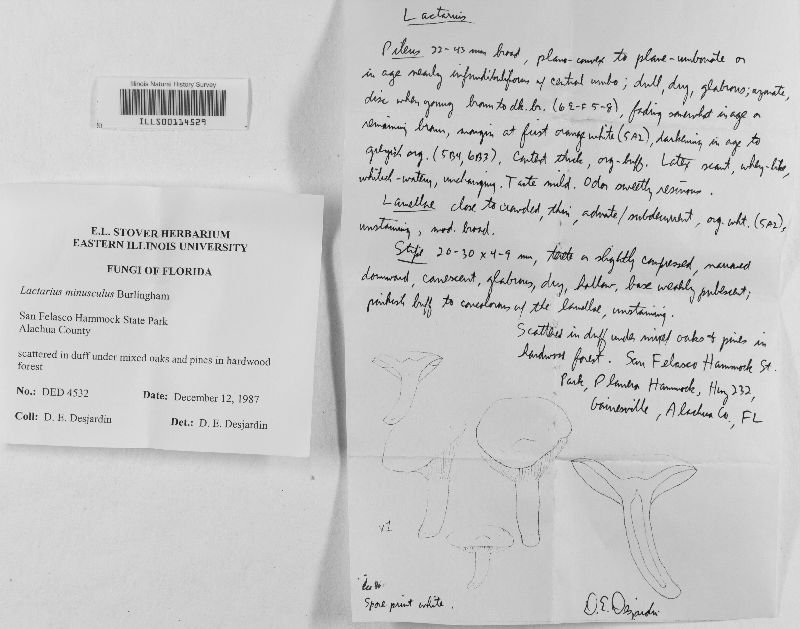 Illinois Natural History Survey
ILLS00114529
E.L. STOVER HERBARIUM
EASTERN ILLINOIS UNIVERSITY
FUNGI OF FLORIDA
Lactarius minusculus Burlingham
San Felasco Hammock State Park
Alachua County
scattered in duff under mixed oaks and pines in hardwood
forest
No.: DED 4532 Date: December 12, 1987
Coll: D. E. Desjardin Det.: D. E. Desjardin
Lactarius
Pileus 22-43 mm broad, plano-convex to plano-umbonate or
in age nearly infundibuliform w/ central umbo; dull, dry, glabrous; azonate,
disc when young brown to dk. br. (6E-F5-8), fading somewhat in age or
remaining brown, margin at first orange white (5A2), darkening in age to
greyish org. (5B4, 6B3). Context thick, org-buff. Latex scant, whey-like,
whitish-watery, unchanging. Taste mild. Odor sweetly resinous.
Lamellae close to crowded, thin, adnate/subdecurrent, org. wht. (5A2),
unstaining, mod. broad.
Stipe 20-30 x 4-9 mm, terete or slightly compressed, narrowed
downward, canescent, glabrous, dry, hollow, base weakly pubescent;
pinkish buff to concolorous w/ the lamellae, unstaining.
Scattered in duff under mixed oaks & pines in
hardwood forest. San Felasco Hammock St.
Park, Planera Hammock, Hwy 232,
Gainesville, Alachua Co., FL
x1
Spore print white.
D.E. Desjardin